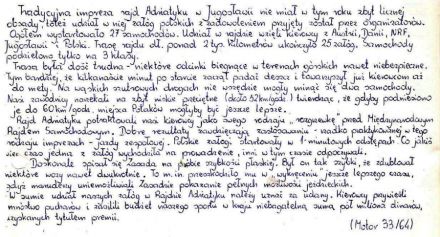 Tradycyjna impreza rajd Adriatyku w Jugosławii nie miał w tym roku zbyt licznej
obsady, toteż udział w niej załóg polskich z zadowoleniem przyjęty został przez organizatorów.
Ogółem wystartowało 27 samochodów. Udział w rajdzie wzięli kierowcy z Austrii, Danii, NRF,
Jugosławii i Polski. Trasę rajdu dł. ponad 2 tys. kilometrów ukończyło 25 załóg. Samochody
podzielono tylko na 3 klasy.
Trasa była dość trudna - niektóre odcinki biegnące w terenach górskich nawet niebezpieczne.
Tym bardziej, że kilkanaście minut po starcie zaczął padać deszcz i towarzyszył już kierowcom aż
do mety. Na wąskich szutrowych drogach nie wszędzie mogły minąć się dwa samochody.
Nasi zawodnicy narzekali na zbyt niskie przeciętne (około 52 km/godz.) twierdząc, że gdyby podniesiono
je do 60 km/godz. miejsca Polaków mogłyby być jeszcze lepsze.
Rajd Adriatyku potraktowali nasi kierowcy jako swego rodzaju "rozgrzewkę" przed Międzynarodowym
Rajdem Samochodowym. Dobre rezultaty zawdzięczają zastosowaniu - rzadko praktykowanej w tego
rodzaju imprezach - jazdy zespołowej. Polskie załogi startowały w 1-minutowych odstępach. Co jakiś
czas jedna z załóg wychodziła na prowadzenie, inni w tym czasie odpoczywali.
Doskonale spisał się Zasada na próbie szybkości płaskiej. Był on tak szybki, że zdublował
niektóre wozy nawet dwukrotnie. To m.in. przeszkodziło mu w "wykręceniu" jeszcze lepszego czasu,
gdyż maruderzy uniemożliwiali Zasadzie pokazanie pełnych możliwości jeździeckich.
W sumie udział naszych załóg w Rajdzie Adriatyku należy uznać za udany. Kierowcy przywieźli
mnóstwo pucharów i zasilili budżet naszego sportu w kraju niebagatelną sumą pół miliona dinarów,
uzyskanych tytułem premii.
(Motor 33/64)